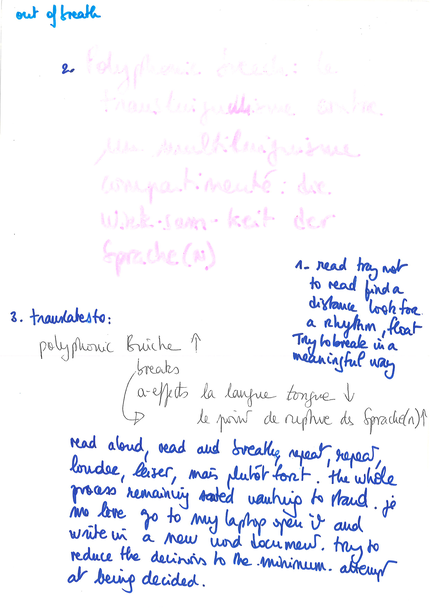 out of breath
2. Polyphonic break: le
translinguisme contre
un multilinguisme
compartimenté: die
wirk-sam-keit der
Sprache(n)
1- read try not
to read find a
distance look for
a rhythm, float
Try to break in a
meaningful way
3. translates to:
polyphonic Brüche ↑
breaks
a-effects la langue tongue ↓
le point de rupture des Sprache(n)↑
read aloud, read and breathe, repeat, repeat,
louder, leiser, mais plutôt fort. the whole
process remaining seated wanting to stand. je
me lève go to my laptop open it and
write in a new word document. try to
reduce the decisions to the minimum. attempt
at being decided.